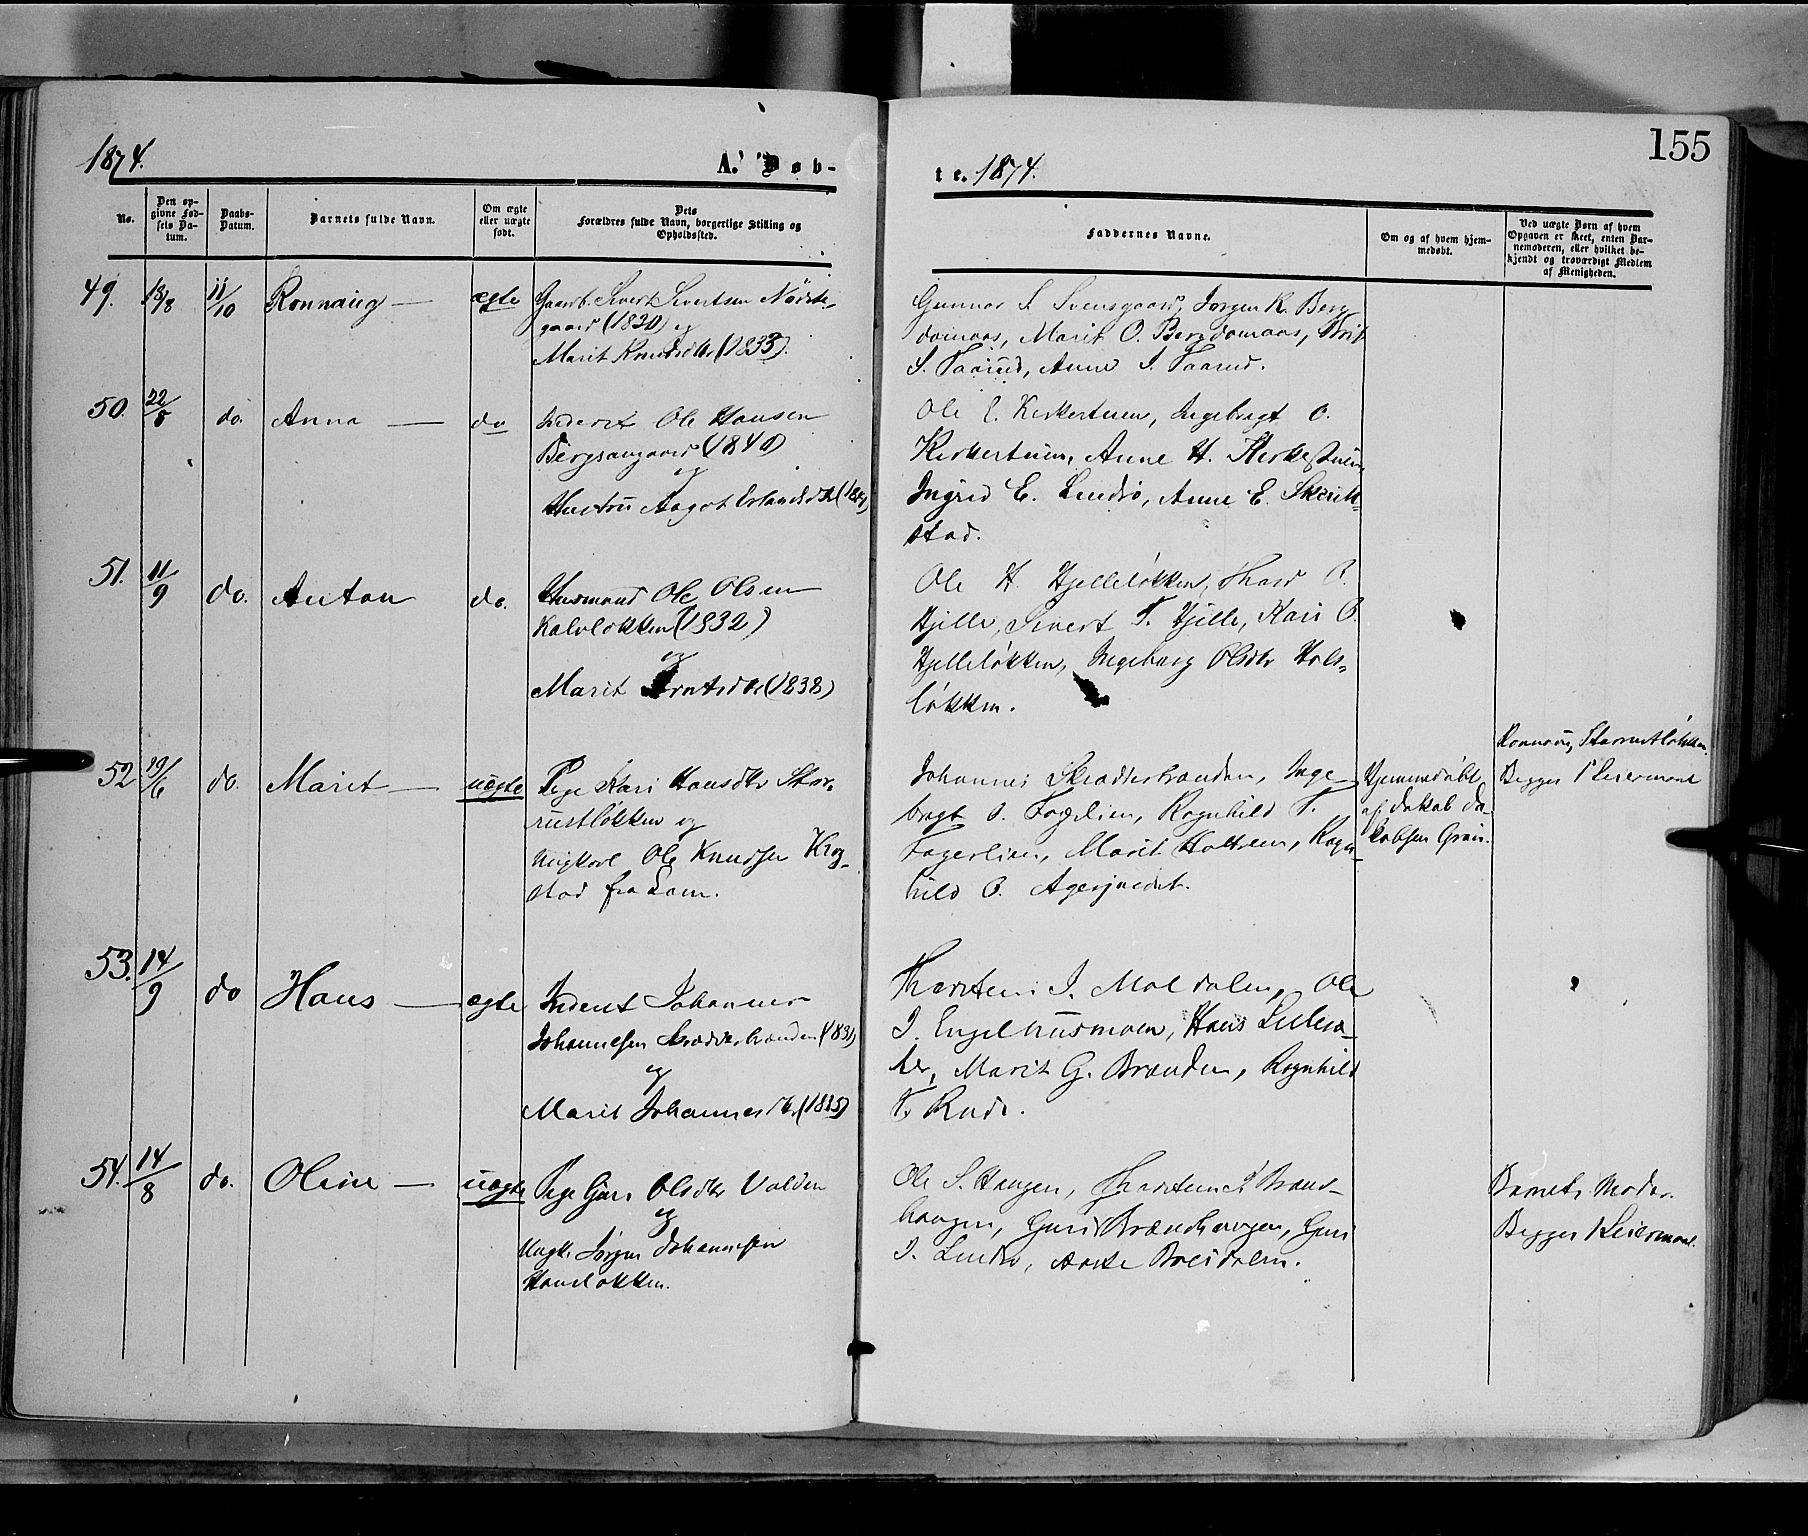 155
1874.
A. Døb-
te. 1874.
No.
Den op-
givne Fød-
sels Da-
tum.
Daabs-
Datum.
Barnets fulde Navn.
Om ægte
eller uægte
født.
Dets
Forældres fulde Navn, borgerlige Stilling og
Opholdssted.
Faddernes Navne.
Om og af hvem hjem-
medøbt.
Ved uægte Børn af hvem
Opgaven er skeet, enten Bar-
nemoderen, eller hvilket be-
kjendt og troværdigt Medlem
af Menigheden.
49. 18/8 11/10 Ronnaug — ægte
Gaarb. Sivert Sivertsen
gaard (1820) og
Marit Knudsdtr (1833).
Gunnar S. Svensgaard, Jørgen K. Berg
domaas, Marit O. Bergdomaas, Brit
S. Faarud, Anne I. Faarud.
50. 22/8 do. Anna — do
Inderst Ole Hansen
(1840)
og
Hustru Aagot Erlandsdtr
Ole E. Kirketuen, Ingebregt O.
Kirketuen, Anne H. Kirketuen,
Ingrid E. Lindsø, Anne E.
stad.
51. 11/9 do. Anton do.
Husmand Ole Olsen
Kalvløkken (1832)
og
Marit (1838)
Ole H. Hjelleløkken, Thord O.
Hjelle, Sivert T. Hjelle, Kari O.
Hjelleløkken, Ingeborg Olsdtr Hols-
løkken.
52 29/6 do. Marit — uægte
Pige Kari Hansdtr Stor-
rustløkken og
Ungkarl Ole Knudsen Krog-
stad fra Lom.
Johannes Skradderbranden, Inge
bregt O. Fagerlien, Ragnhild T.
Fagerlien, Marit Holteen, Ragn-
hild O. Agerjordet.
Hjemmedøbt
af Jakob Ja-
kobsen
Ronnaug Storrustløkken.
Begges 1 Leiermaal
53. 14/9 do Hans — ægte
Inderst Johannes
Johannesen Skrædderbranden (1831)
og
Marit Johannesdtr (1835)
Thorsten I. Moldalen, Ole
I. Engelhusmoen, Hans
ter, Marit G. Brænden, Ragnhild
T. Rudi.
54. 14/8 do. Oline — uægte
Pige Guri Olsdtr Volden
og
Ungk. Jørgen Johannesen
Hansløkken.
Ole S. Haugen, Thorsten Brænd-
haugen, Guri Brændhaugen, Guri
I. Lindsø, Aaste Breidalen.
Barnets Moder.
Begges 1 Leiermaal.